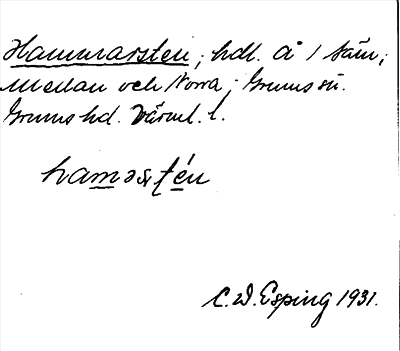 Hammarsten, hdl. å / Säm,
Mellan och Norra; Grums sn.
Grums hd. Värml. l.
haməʂtén
C. W. Esping 1931.